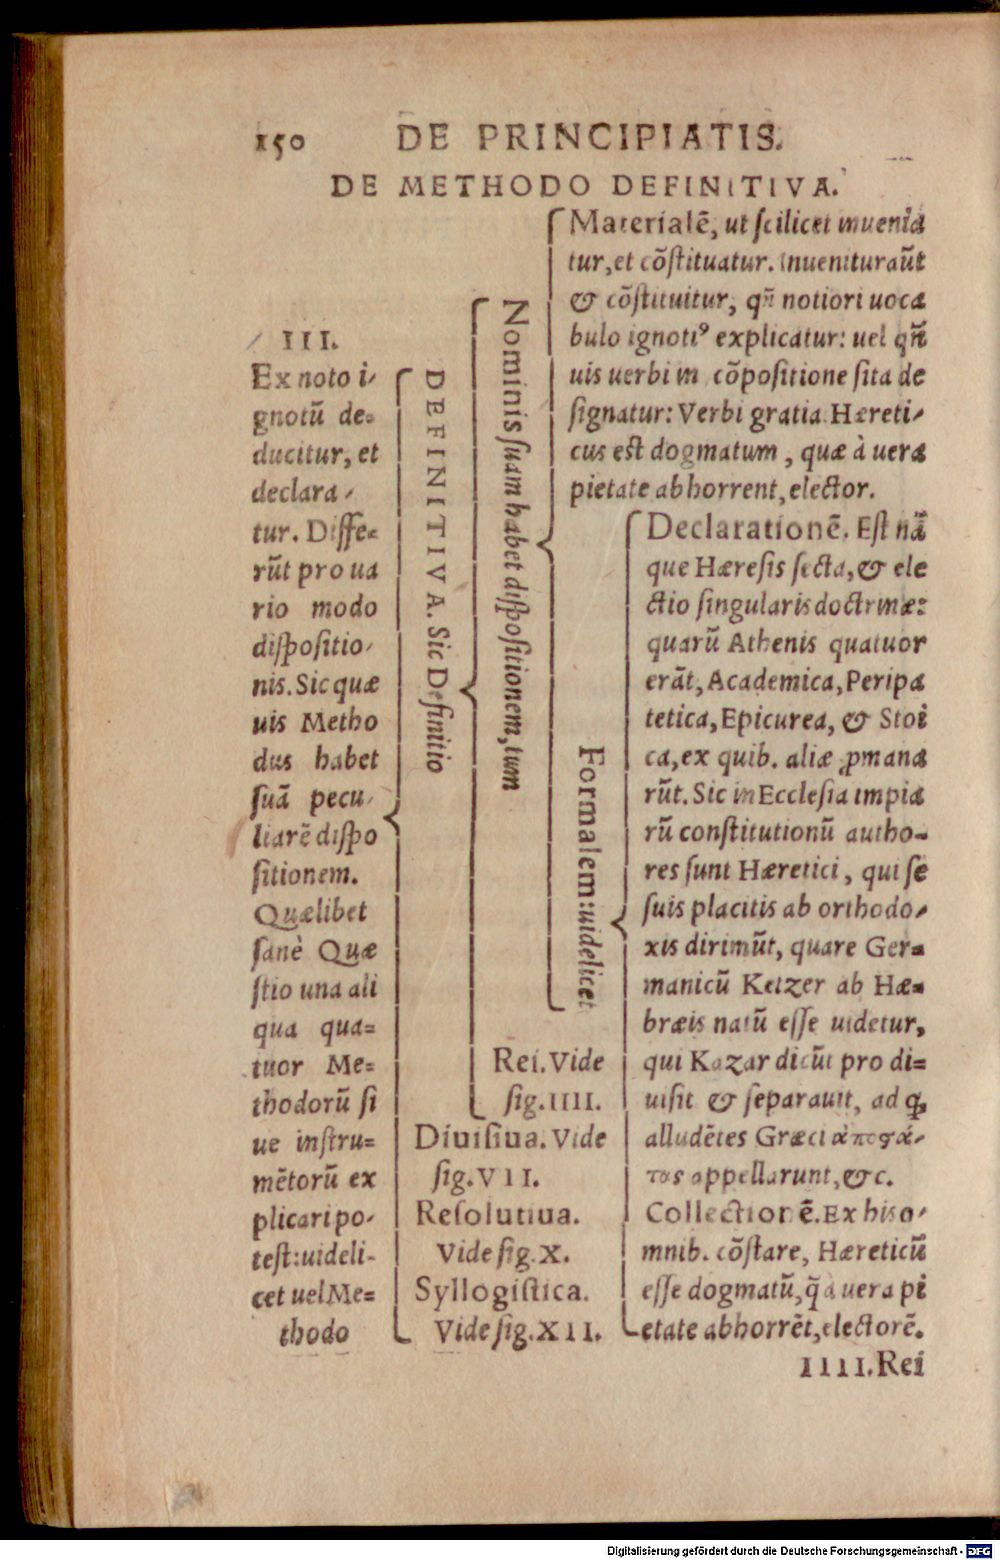 150 DE PRINCIPIATIS.
DE METHODO DEFINITIVA.
III.
Ex noto i-
gnotũ de-
ducitur, et
declara-
tur. Diffe-
rũt pro ua
rio modo
dispositio-
nis. Sic quæ
uis Metho
dus habet
suã pecu-
liarẽ dispo
sitionem.
Quælibet
sanè Quæ
stio una ali
qua qua-
tuor Me-
thodorũ si
ue instru-
mẽtorũ ex
plicari po-
test: uideli-
cet uel Me-
thodo
DEFINITIVA. Sic Definitio
Nominis suam habet dispositionem, tum
Materialẽ, ut scilicet inueniã
tur, et cõstituatur. Inuenitur aũt
& cõstituitur, qñ notiori uoca
bulo ignotiꝰ explicatur: uel qñ
uis uerbi in cõpositione sita de
signatur: Verbi gratia Hæreti-
cus est dogmatum, quæ à uera
pietate abhorrent, elector.
Formalem: uidelicet
Declarationẽ. Est nã
que Hæresis secta, & ele
ctio singularis doctrinæ:
quarũ Athenis quatuor
erãt, Academica, Peripa
tetica, Epicurea, & Stoi
ca, ex quib. aliæ ꝓmana
rũt. Sic in Ecclesia impia
rũ constitutionũ autho-
res sunt Hæretici, qui se
suis placitis ab orthodo-
xis dirimũt, quare Ger-
manicũ Ketzer ab Hæ-
bræis natũ esse uidetur,
qui Kazar dicũt pro di-
uisit & separauit, ad ꝙ
alludẽtes Græci ἀποϛά-
τας appellarunt, &c.
Collectionẽ. Ex his o-
mnib. cõstare, Hæreticũ
esse dogmatũ, q̃ à uera pi
etate abhorrẽt, electorẽ.
Rei. Vide
sig. IIII.
Diuisiua. Vide
sig. VII.
Resolutiua.
Vide sig. X.
Syllogistica.
Vide sig. XII.
IIII. Rei
Digitalisierung gefördert durch die Deutsche Forschungsgemeinschaft - DFG